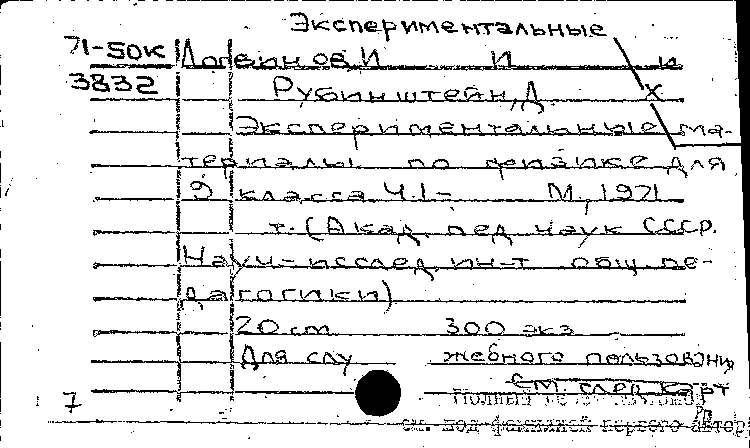 Экспериментальные
71-50к Логвинов, И И и
3832 Рубинштейн, Д. Х
Экспериментальные ма-
териалы по физике для
9 класса Ч.1- М., 1971
т. (Акад. пед. наук СССР.
Науч-исслед. ин-т общ. пе-
дагогики)
20 см 300 экз
Для слу жебного пользования
см. след. карт
7 Полное
см. под фамилией первого автора